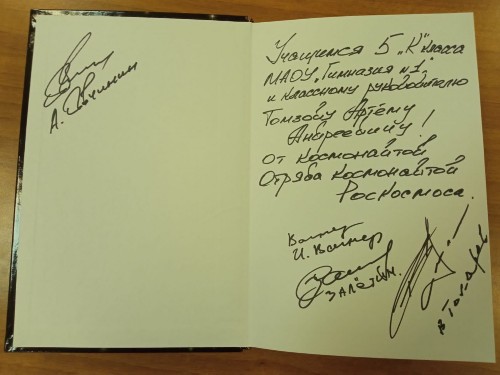 А. Овчинин
Учащимся 5 „К" класса
МАОУ „Гимназия №1"
и классному руководителю
Томзову Артёму
Андреевичу!
от космонавтов
Отряда космонавтов
Роскосмоса.
Вагнер
И. Вагнер
ЗАЛЁТИН.
В Токарев